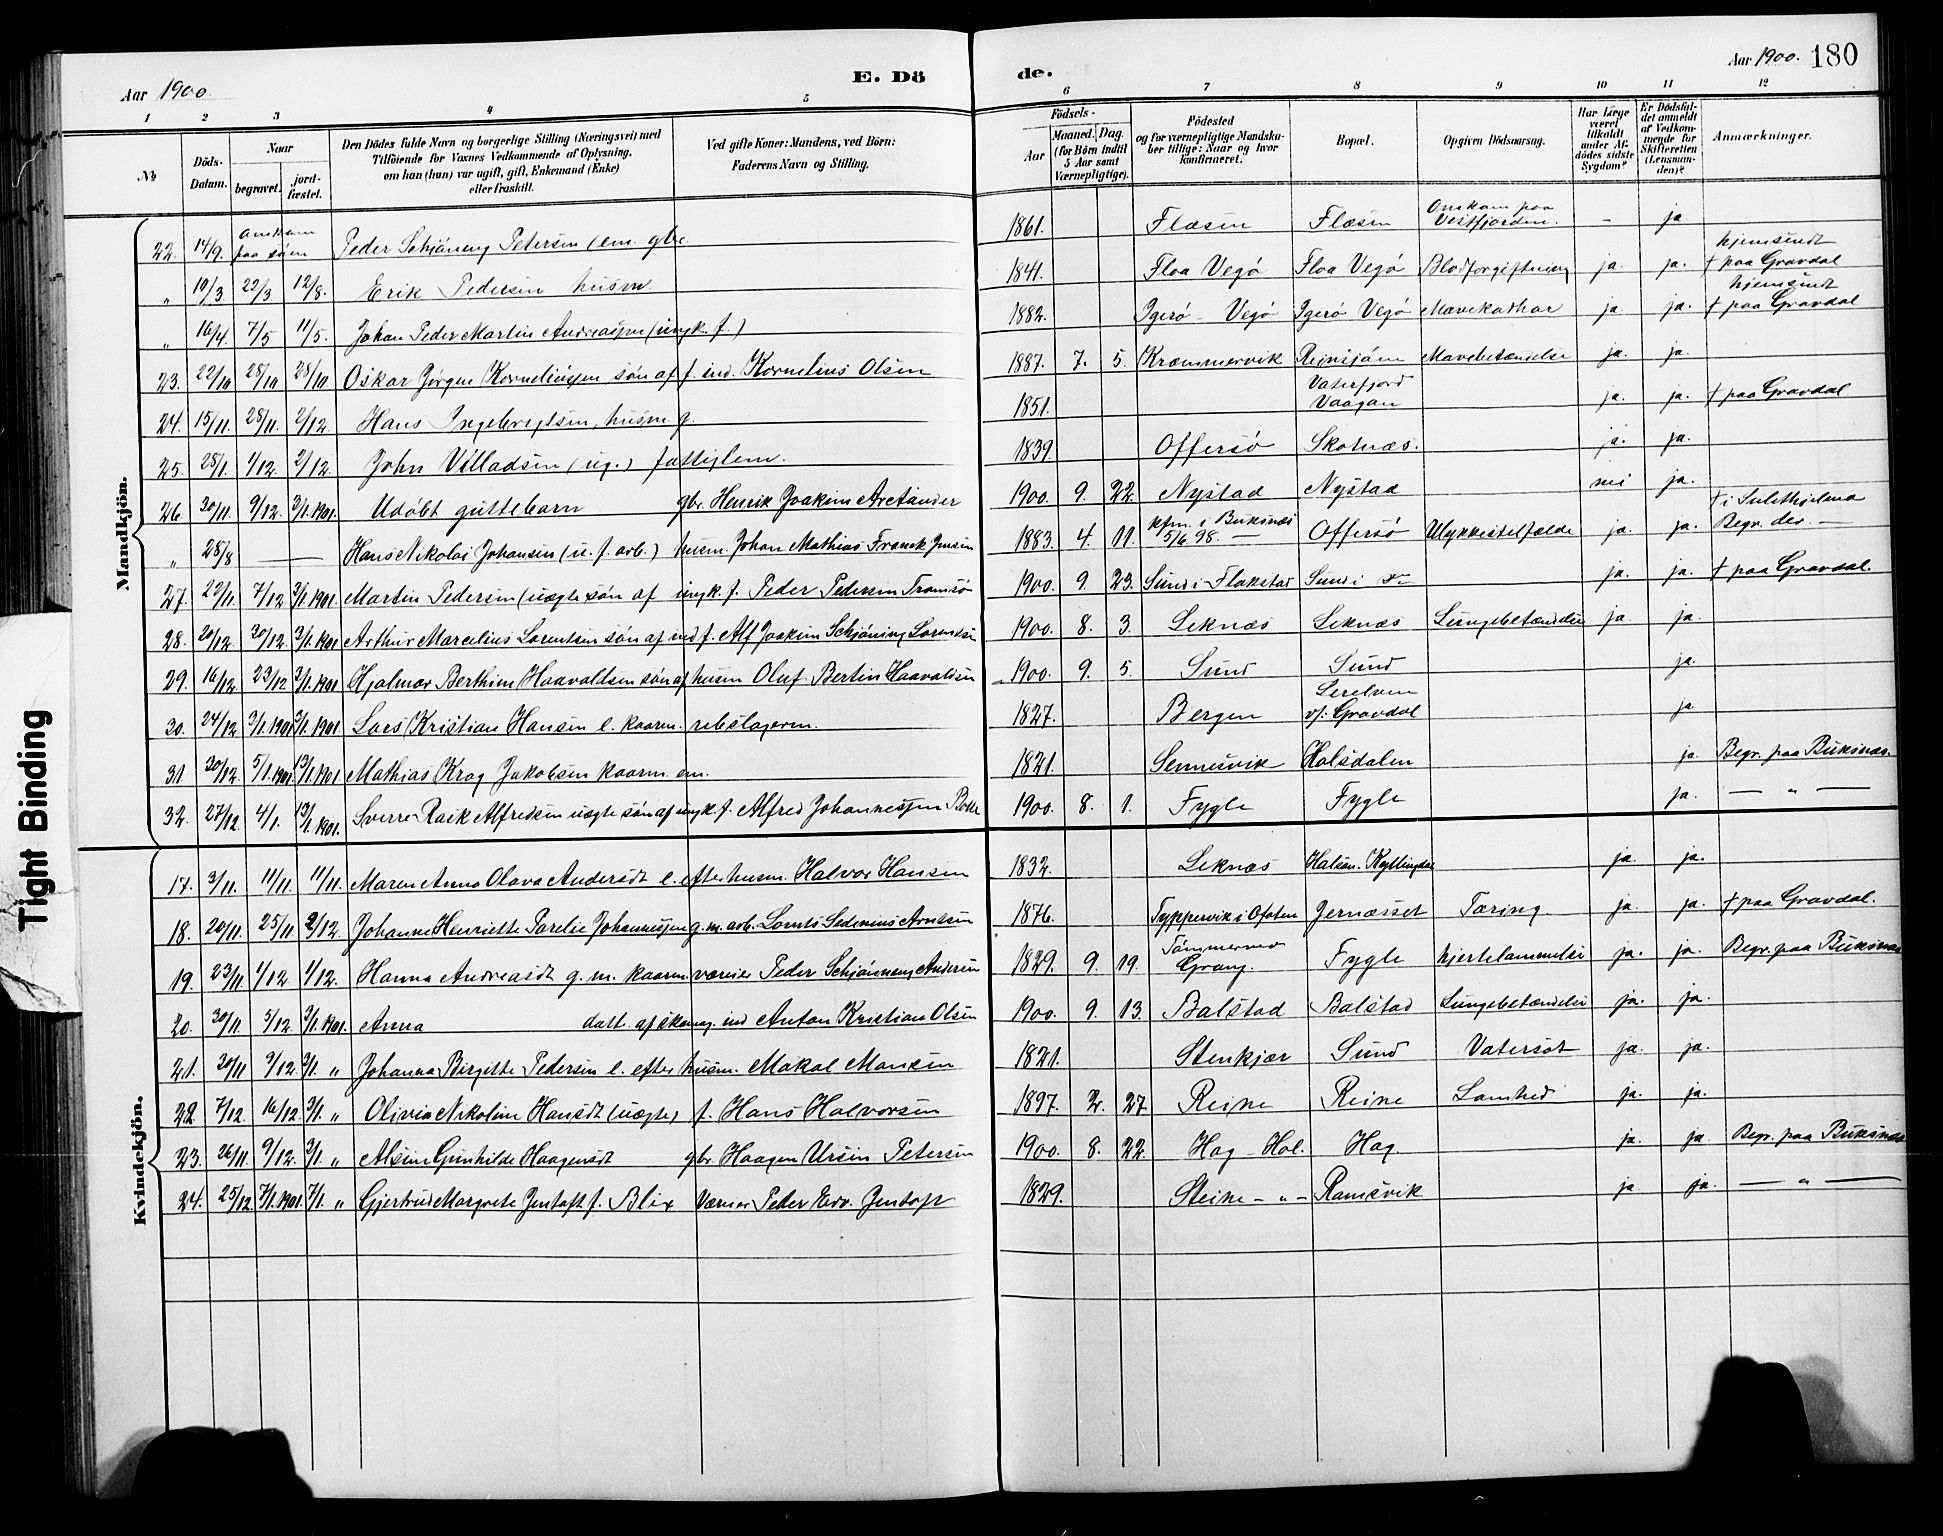 Aar 1900. E. Dö de. Aar 1900. 180
1 2 3 4 5 6 7 8 9 10 11 12
No
Döds-Datum.
Naar
begravet.
jord-fæstet.
Den Dödes fulde Navn og borgerlige Stilling (Næringsvei) med
Tilföiende for Voxnes Vedkommende af Oplysning,
om han (hun) var ugift, gift, Enkemand (Enke)
eller fraskilt.
Ved gifte Koner: Mandens, ved Börn:
Faderens Navn og Stilling.
Födsels-
Aar
Maaned. Dag.
(for Börn indtil
5 Aar samt
Værnepligtige).
Födested
og for værnepligtige Mandskaber tillige: Naar og hvor
konfirmeret.
Bopæl.
Opgiven Dödsaarsag.
Har Læge
været
tilkaldt
under Afdödes sidste
Sygdom?
Er Dödsfaldet anmeldt
af Vedkommende for
Skifteretten
(Lensmanden)?
Anmærkninger.
Mandkjön.
22. 14/9. omkom paa søen Peder Schjöneng Petersen (em. gbr. 1861. Flæsen Flæsen Omkom paa Vestfjorden. - ja
" 10/3 22/3 12/8. Erik Pedersen husm. 1841. Floa Vegö Floa Vegö Blodforgiftning ja. ja. hjemsendt † paa Gravdal
" 16/4. 7/5 11/5. Johan Peder Martin Andreassen (ungk. f.) 1882. Igerö - Vegö Igerö Vegö Mavekathar ja. ja. hjemsendt † paa Gravdal
23. 22/10 28/10 28/10 Oskar Jörgen Korneliussen sön af f. ind. Kornelius Olsen 1887. 7. 5. Kræmmervik Mavebetændelse ja. ja.
24. 15/11. 28/11. 2/12. Hans Ingebrigtsen, husm. g. 1851. Vaterfjord Vaagan ja. ja. † paa Gravdal
25. 28/1. 1/12. 2/12. John Villadsen (ug.) fattiglem. 1839. Offersö Skotnæs. ja. ja.
26 30/11. 9/12. 3/1.1901. Udöbt guttebarn gbr. Henrik Joakim Arctander 1900. 9. 22. Nystad Nystad nei ja.
" 28/8 — Hans Nikolai Johansen (u. f. arb.) husm. Johan Mathias Franck Jensen 1883. 4. 11. kfm. i Buksnæs 5/6 98. — Offersö Ulykkestilfælde ja. ja. † i Sulithjelma Begr. der. —
27. 22/11. 7/12 3/1.1901. Martin Pedersen (uægte sön af ungk. f. Peder Pedersen Tromsö 1900. 9. 23. Sund i Flakstad Sund i do ja. ja. † paa Gravdal.
28. 20/12. 30/12. 3/1.1901 Arthur Marcelius Lorentsen sön af ind f. Alf Joakim Schjöning Lorentsen 1900. 8. 3. Leknæs Leknæs Lungebetændelse ja ja.
29. 16/12. 23/12 3/1.1901. Hjalmar Berthin Haavaldsen sön af husm Oluf Bertin Haavaldsen 1900. 9. 5. Sund Sund ja.
30. 24/12. 3/1.1901 3/1.1901. Lars Kristian Hansen e. kaarm. rebslageren. 1827. Bergen v/: Gravdal ja
31. 30/12. 5/1.1901 13/1.1901. Mathias Krog Jakobsen kaarm. em. 1821. Sennesvik Holsdalen ja. Begr. paa Buksnæs.
32. 27/12. 4/1. 13/1.1901. Sverre Raik Alfredsen uægte sön af ungk. f. Alfred Johannessen 1900. 8. 1. Fygle Fygle ja. — " —
Kvindekjön.
17. 3/11. 11/11. 11/11. Maren Anna Olava Andersdt e. efter husm. Halvor Hansen 1832. Leknæs ja. ja.
18. 20/11. 25/11 2/12. Johanne Henriette Parelie Johannessen g. m. arb. Lorents Sedenius Arntsen 1876. i Ofoten Jernæsset Tæring. ja. ja. † paa Gravdal.
19. 23/11 1/12. 1/12. Hanna Andreasdt g. m. kaarm. væreier Peder Schjönneng Andersen 1829. 9. 19. Tömmernes Grang. Fygle hjertelammelse ja. ja. Begr. paa Buksnæs
20. 30/11. 5/12. 3/1.1901. Anna datt. af ind Anton Kristian Olsen 1900. 9. 13. Balstad Balstad Lungebetændelse ja. ja.
21. 30/11 9/12. 3/1. " Johanna Birgitte Pedersen e. efter husm. Mikal Monsen 1821. Stenkjær Sund Vatersot ja. ja.
22. 7/12. 16/12. 3/1. " Olivia Nikoline Hansdt (uægte) f. Hans Halvorsen 1897. 2. 27. Reine Reine Lamhed ja. ja.
23. 26/11. 9/12. 3/1. " Alsine Gunhilde Haagensdt gbr. Haagen Ursin Petersen 1900. 8. 22. Hag - Hol. Hag. ja. ja. Begr. paa Buksnæs
24. 25/12. 7/1.1901. 7/1. " Gjertrud Margrete Jentoft f. Blix Væreier Peder Edv. Jentoft 1829. Steine - " - Ramsvik ja. ja. — " —
Tight Binding